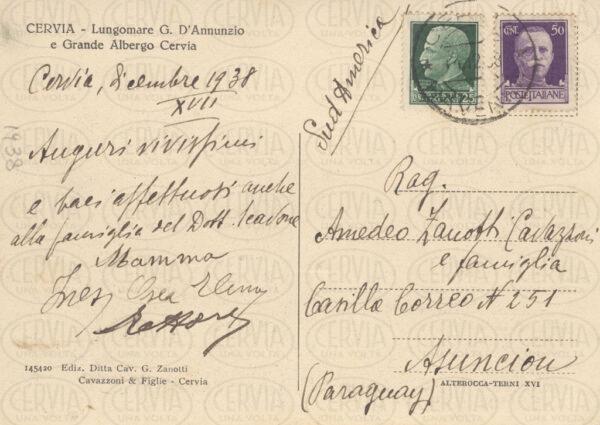 CERVIA - Lungomare G. D'Annunzio
e Grande Albergo Cervia
Cervia, dicembre 1938
XVII
1938
Auguri vivissimi
e baci affettuosi anche
alla famiglia del Dott. Scavone
Mamma
Ines Elena
145420 Ediz. Ditta Cav. G. Zanotti
Cavazzoni & Figlie - Cervia
Sud America
25
CENT. 50
POSTE ITALIANE
Rag.
Amedeo Zanotti Cavazzoni
e famiglia
Casilla Correo N 251
Asuncion
(Paraguay)
ALTEROCCA-TERNI XVI
CERVIA
UNA VOLTA